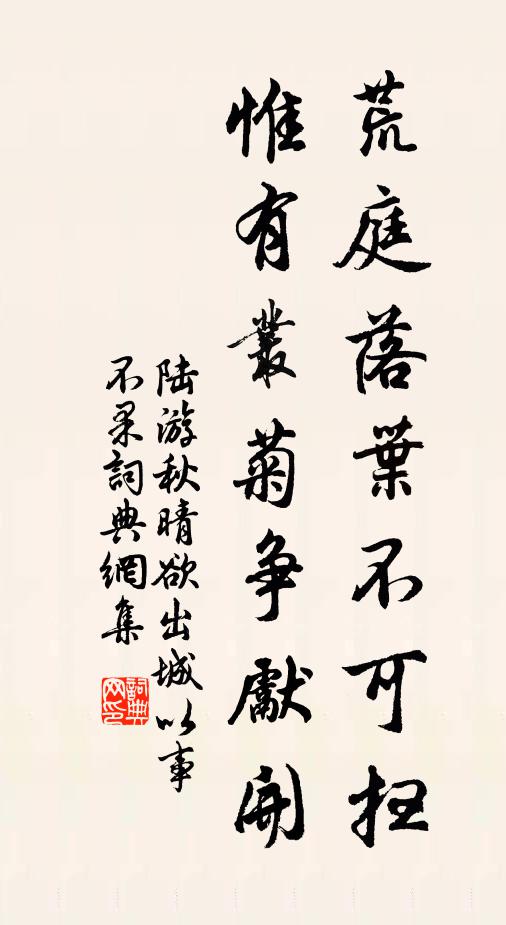 荒庭落葉不可掃
惟有叢菊争獻開
陆游秋晴欲出城以事
不果詞典網集
詞典
网印